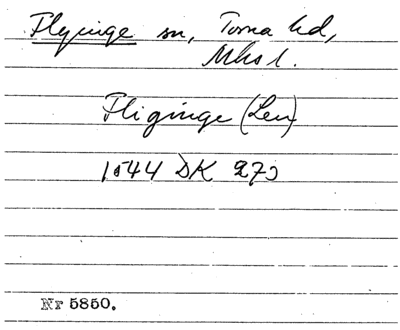 Flyinge sn, Torna hd,
Mhs l.
Fliginge (Len)
1544 DK 270
Nr 5850.